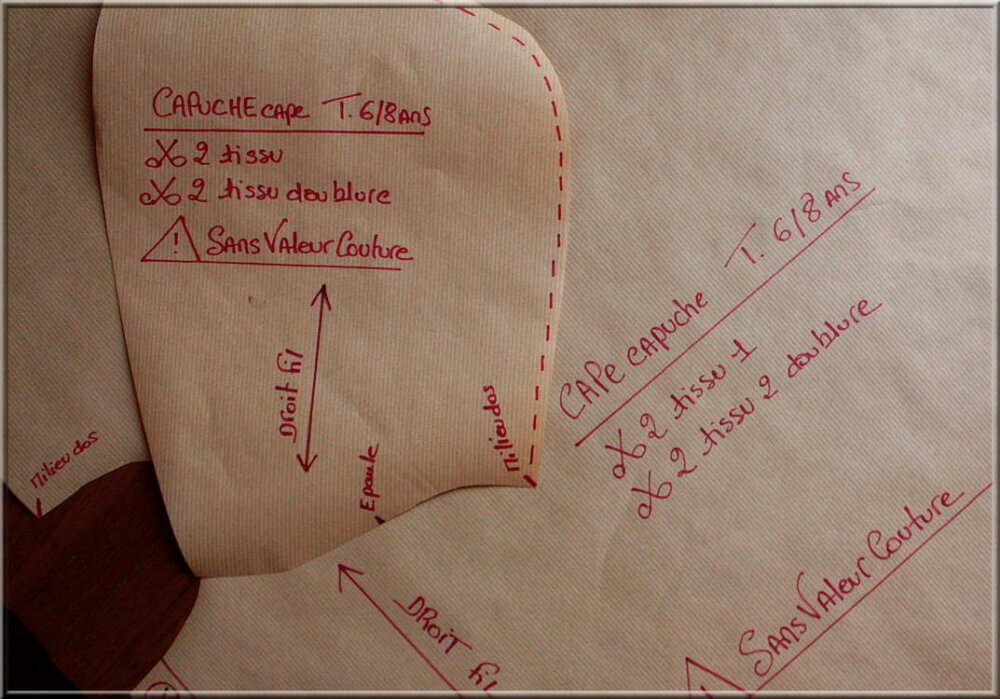 CAPUCHE cape T. 6/8 ans
X 2 tissu
X 2 tissu doublure
! Sans Valeur Couture
Droit fil
Epaule
Milieu dos
Milieu dos
CAPe capuche T. 6/8 ans
X 2 tissu 1
X 2 tissu 2 doublure
Sans Valeur Couture
DRoiT fil